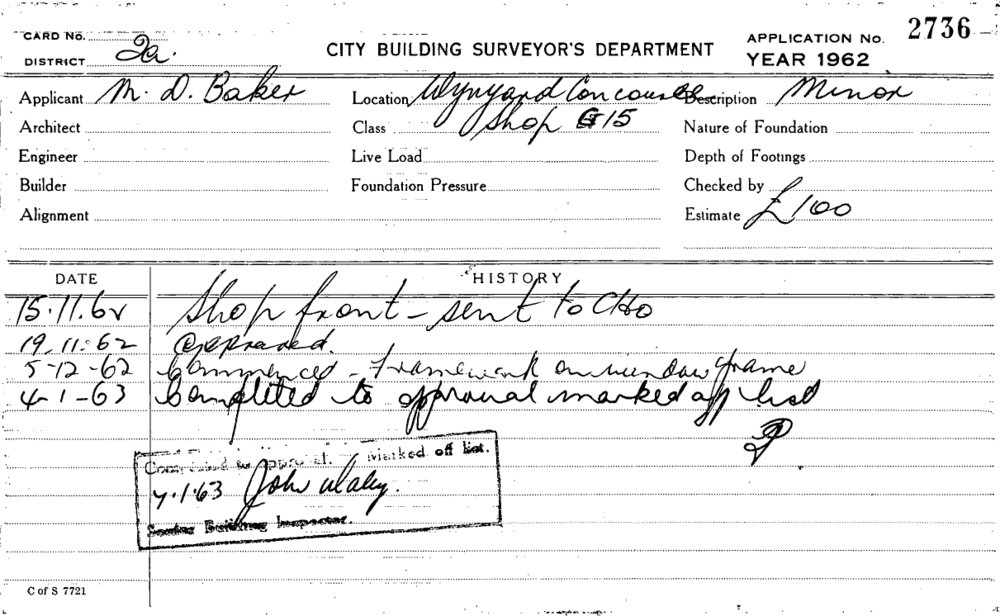 CARD No.
DISTRICT 2a.
CITY BUILDING SURVEYOR'S DEPARTMENT
APPLICATION No. 2736
YEAR 1962
Applicant M. D. Baker Location Wynyard Concourse Description Minor
Architect Class Shop G15 Nature of Foundation
Engineer Live Load Depth of Footings
Builder Foundation Pressure Checked by
Alignment Estimate £100
DATE HISTORY
15.11.62 Shop front - sent to CHO
19.11.62 Approved.
5-12-62 Commenced - Framework on window frame
4-1-63 Completed to approval marked off list
Completed to approval. Marked off list.
7.1.63 John Daley.
Senior Building Inspector.
C of S 7721